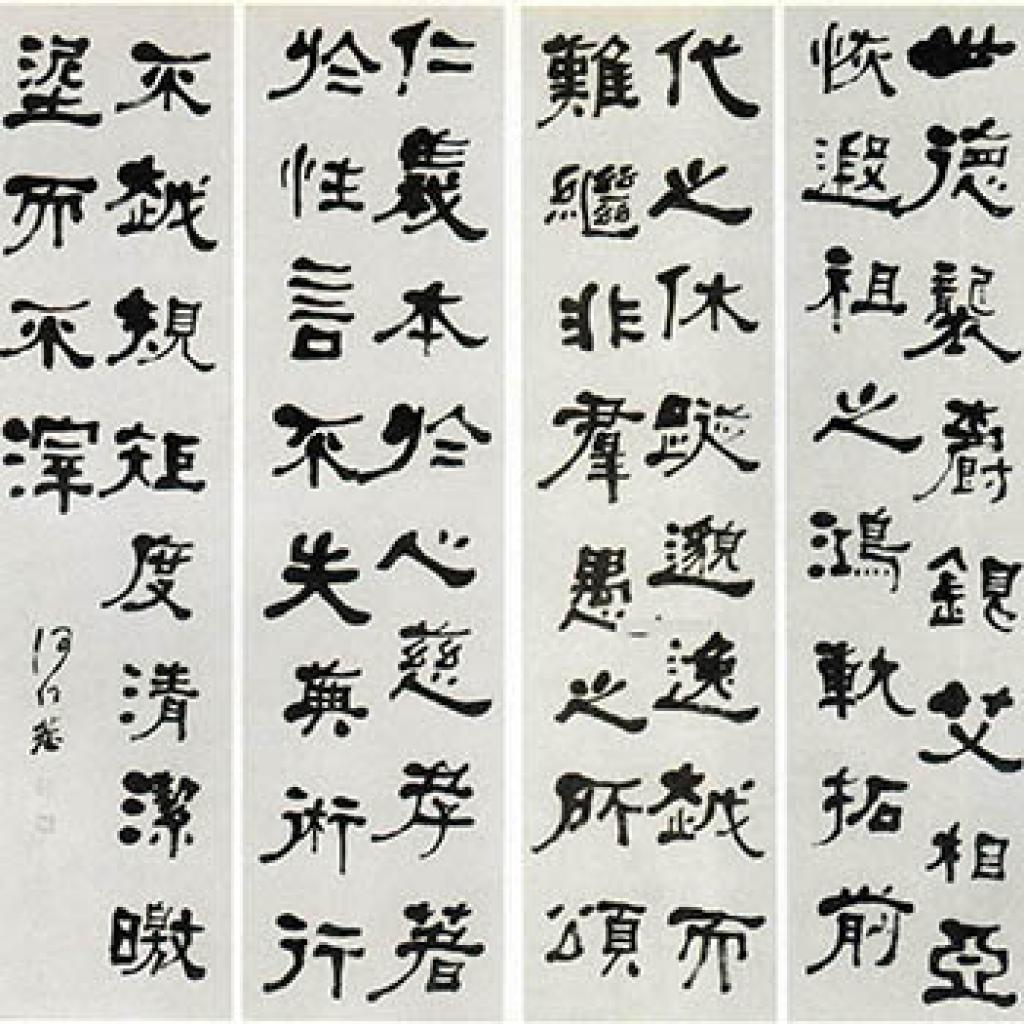 世德襲爵銀艾相亞
恢遐祖之鴻軌拓前
代之休蹤邈逸越而
難繼非羣愚之所頌
仁義本於心慈孝著
於性言不失典術行
不越規矩度清潔曒
埿而不滓
何紹基